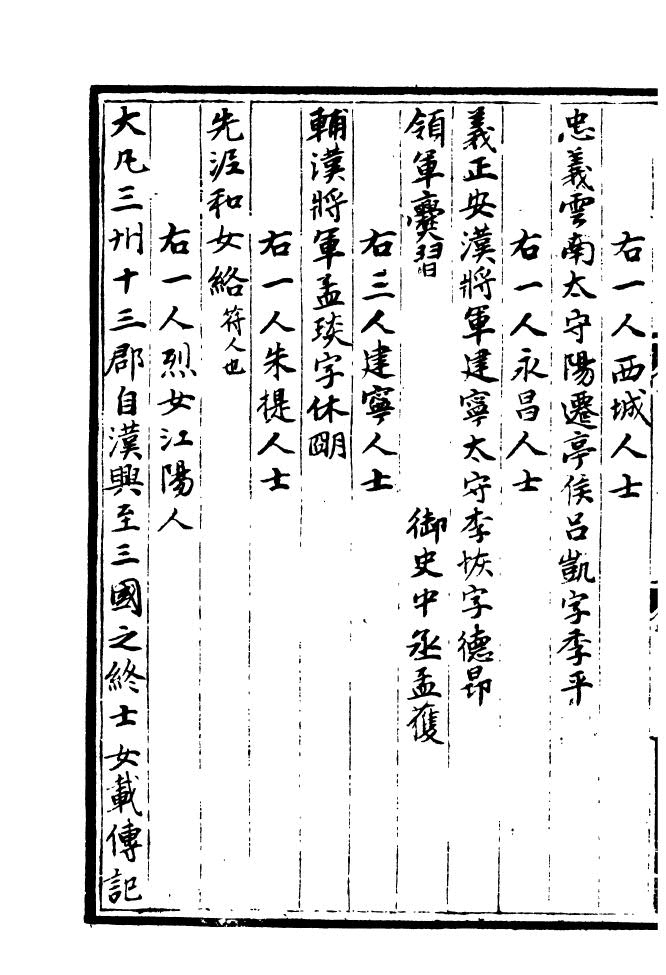 右一人西城人士
忠義雲南太守陽遷亭侯呂凱字季平
右一人永昌人士
義正安漢將軍建寧太守李恢字德昂
領軍爨習 御史中丞孟獲
右三人建寧人士
輔漢將軍孟琰字休朙
右一人朱提人士
先涇和女絡符人也
右一人烈女江陽人
大凡三州十三郡自漢興至三國之終士女載傳記